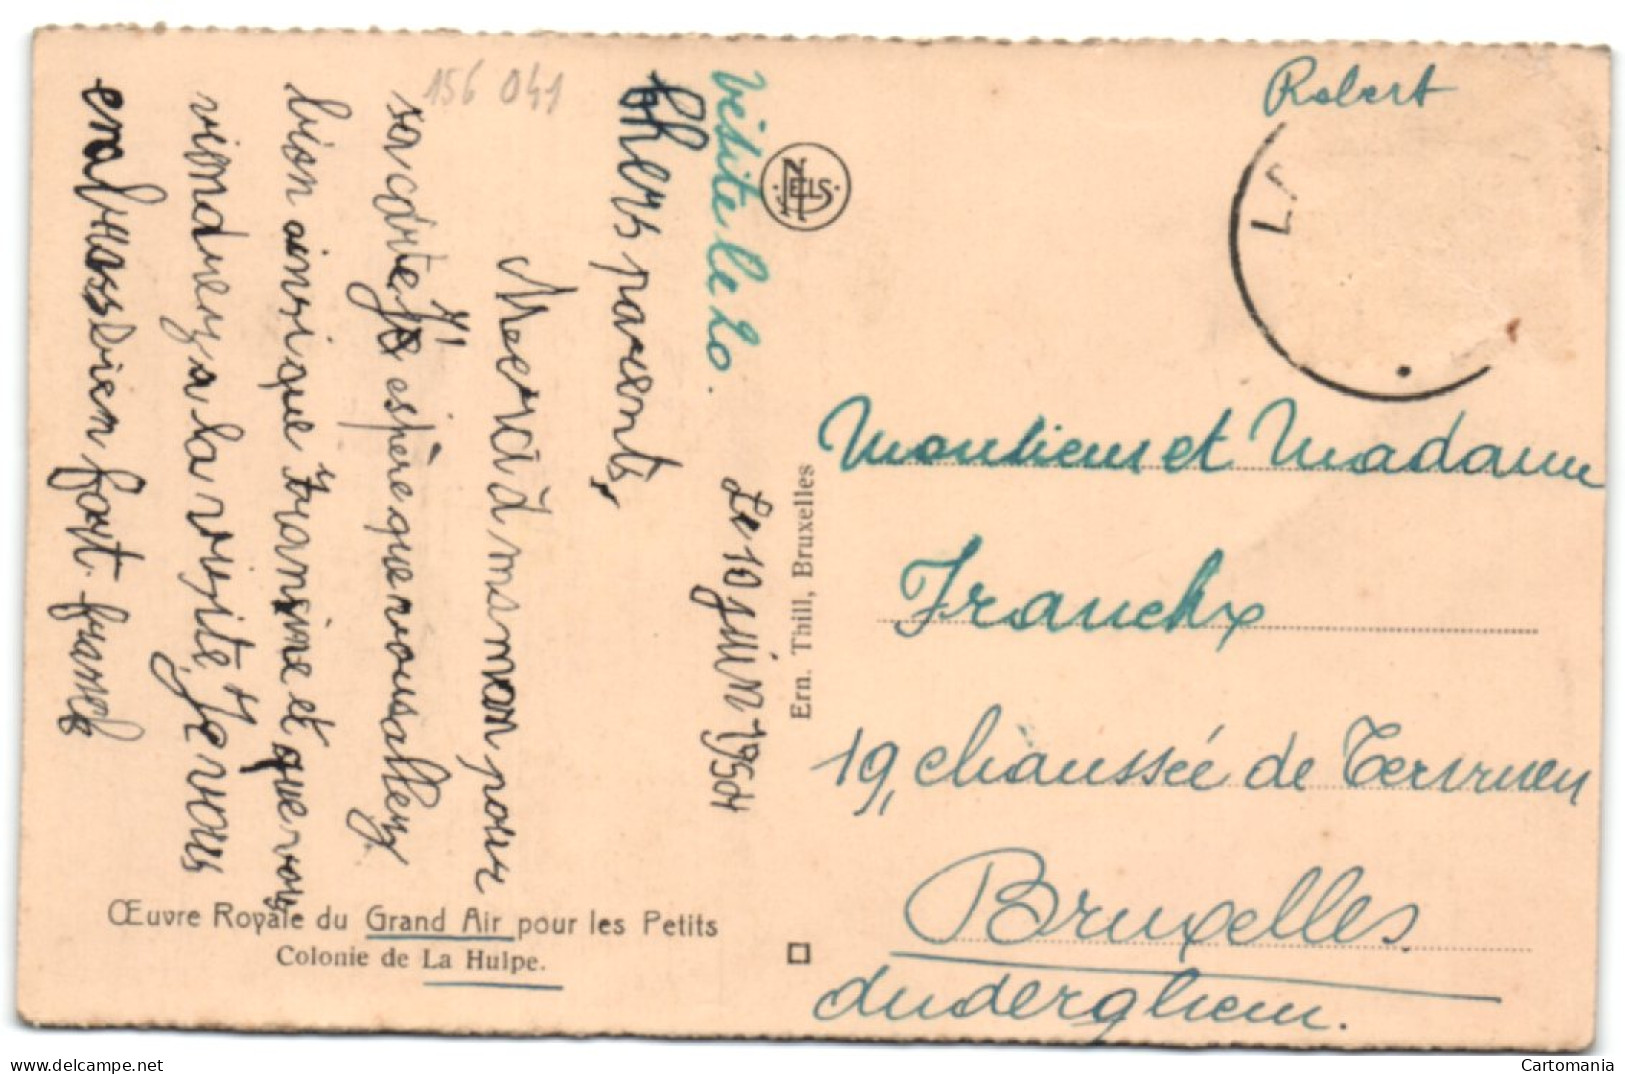 156 041
Visite le 20.
Le 10 juin 1954
Chers parents,
Merci à maman pour
sa carte. Je espère que vous allez
bien ainsi que Francine et que vous
viendrez à la visite. Je vous
embrasse bien fort. francis
Œuvre Royale du Grand Air pour les Petits
Colonie de La Hulpe.
NELS
Ern. Thill, Bruxelles
Robert
LA
Monsieur et Madame
Franckx
19, chaussée de Tervuren
Bruxelles
Auderghem.
delcampe.net
Cartomania